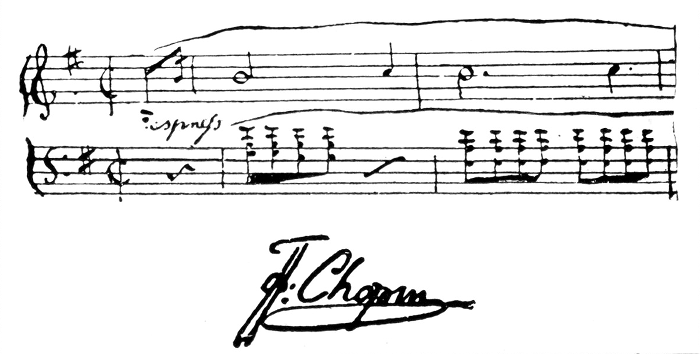 espress
F. Chopin